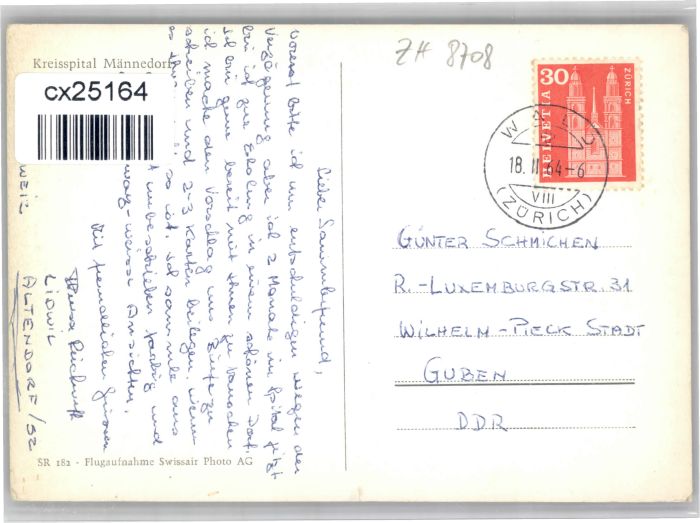 ZH 8708
Kreisspital Männedorf
cx25164
30
HELVETIA
ZÜRICH
WALD
18. II 64-6
VIII
(ZÜRICH)
GÜNTER SCHMICHEN
R.-LUXEMBURGSTR. 31
WILHELM-PIECK STADT
GUBEN
DDR
Liebe Sammlerfreund,
vorerst bitte ich um entschuldigen wegen der
Verzögerung aber ich 2 Monate im Spital jetzt
bin ich zur Erholung in einem schönen Dorf.
Ich bin gerne bereit mit Ihnen zu tauschen
ich mache den Vorschlag uns Briefe zu
schreiben und 2-3 Karten beilegen, wenn
so ist. Ich sammle aus
unbeschrieben farbig und
warz-weisse Ansichten.
Mit freundlichen Grüssen
LIDWIL
ALTENDORF/SZ
SR 182 · Flugaufnahme Swissair Photo AG